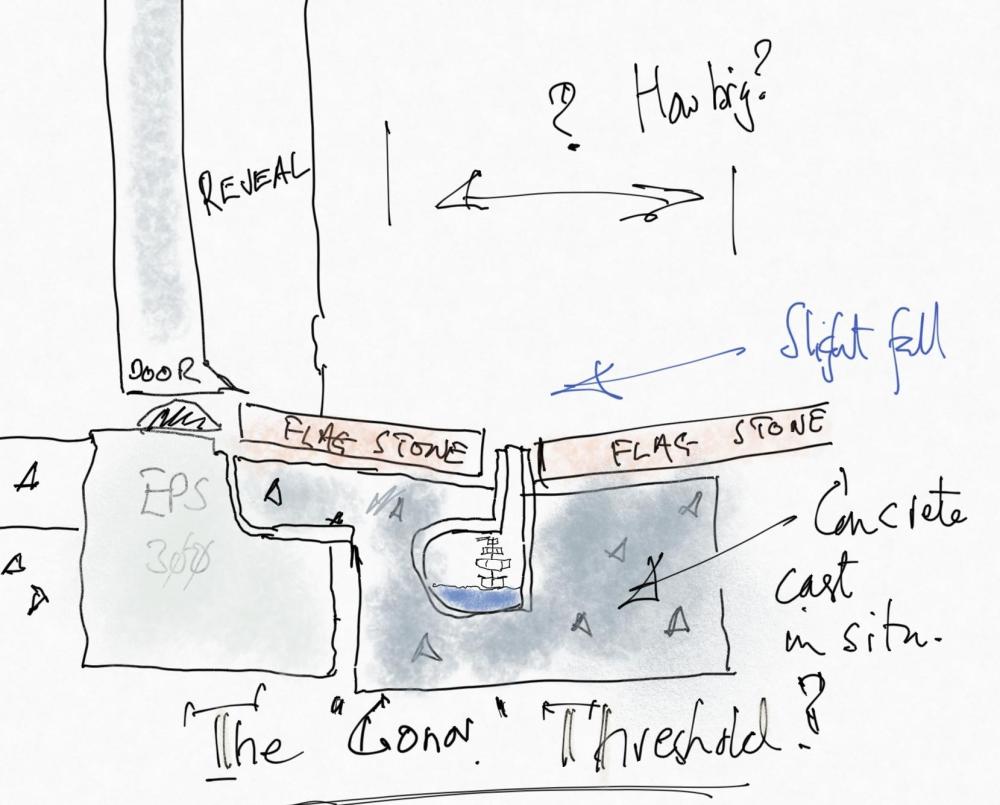 ? How big?
REVEAL
Slight fall
DOOR
FLAG STONE
FLAG STONE
EPS
300
Concrete
cast
in situ.
The "Conor" Threshold?